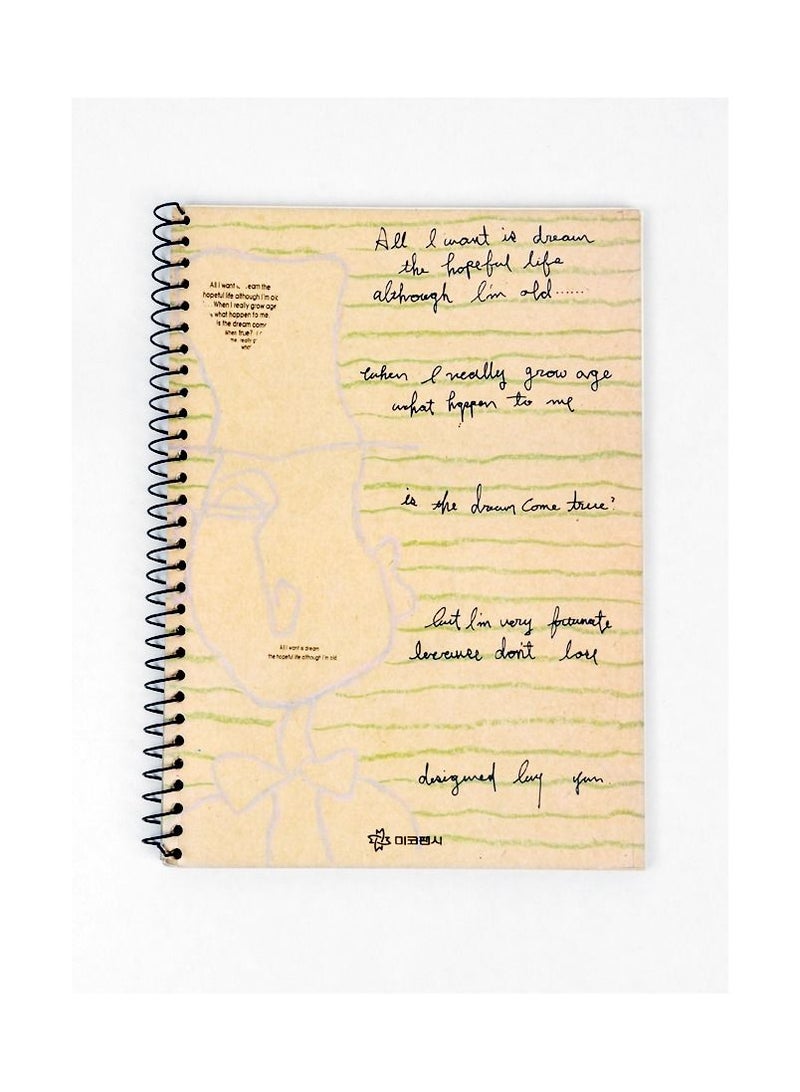 All I want is dream
the hopeful life
although I'm old......
when I really grow age
what happen to me
is the dream come true?
but I'm very fortunate
because don't lose
designed by yun
All I want is dream the
hopeful life although I'm old
When I really grow age
what happen to me.
is the dream come
when true?
me. really
what
All I want is dream
the hopeful life although I'm old
미코팬시